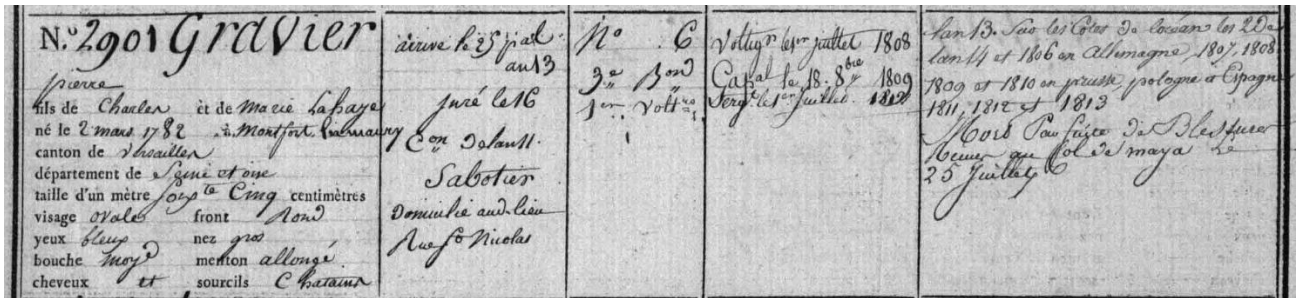 N.º 2901 Gravier
pierre
fils de Charles et de Marie Lahaye
né le 2 mars 1782 à Montfort Lamaury
canton de Versailles
département de Seine et oise
taille d'un mètre soixte Cinq centimètres
visage ovale front Rond
yeux bleus nez gros
bouche moye menton allongé
cheveux et sourcils Chatains
arrivé le 25 pial
an 13
juré le 16
Con de lan 11.
Sabotier
Domicilié aud. lieu
Rue St Nicolas
No 6
3e Bon
1er Voltrs
Voltigr le 1er juillet 1808
Capal le 18. 8bre 1809
Sergt le 1er juillet 1812
lan 13. Sur les Côtes de locéan les 2 De
lan 14 et 1806 en Allemagne, 1807, 1808
1809 et 1810 en prusse, pologne et Espagne
1811, 1812 et 1813
Mort Par suite de Blessures
Reçues au Col de maya Le
25 Juillet